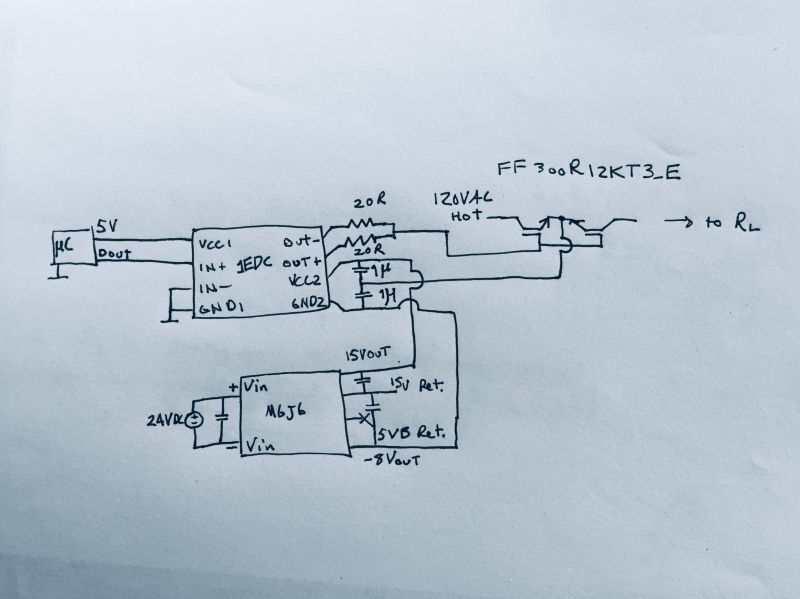 FF300R12KT3_E
20R
120VAC
HOT
→ to RL
5V
µC
Dout
VCC1
OUT-
20R
IN+
1EDC
OUT+
1µ
IN-
VCC2
1µ
GND1
GND2
15VOUT
+ Vin
15V Ret.
24VDC
M6J6
5VB Ret.
- Vin
-8VOUT